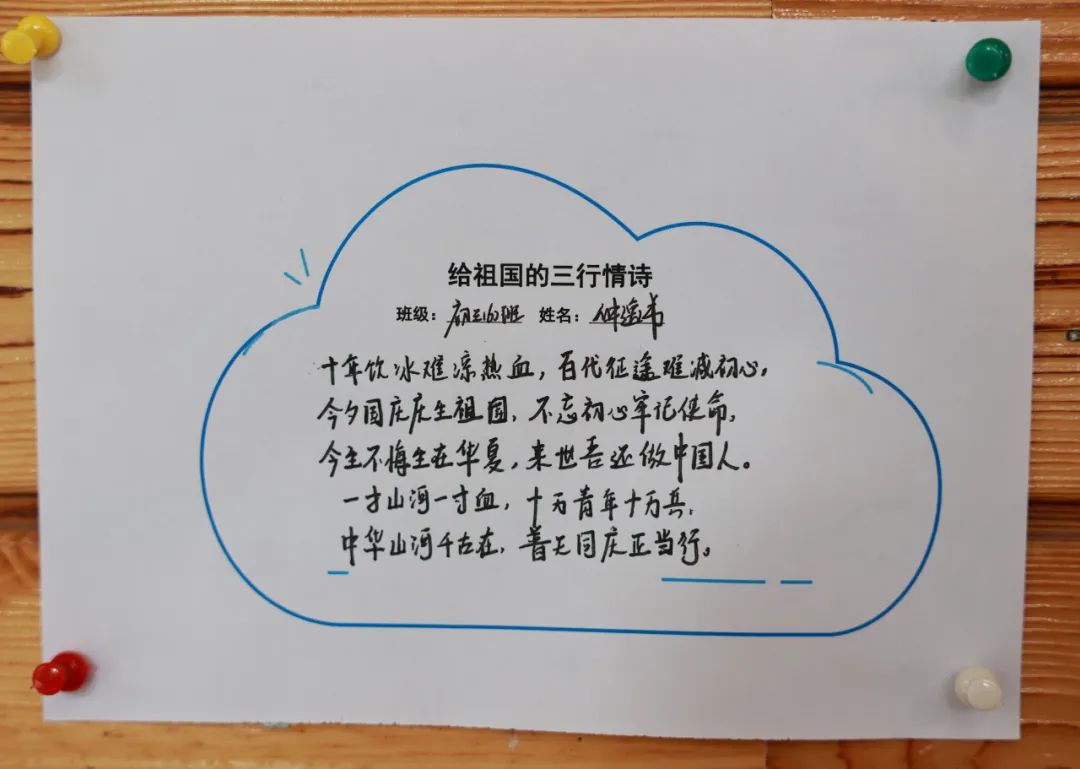 给祖国的三行情诗
班级： 姓名：
十年饮冰难凉热血，百代征途难减初心。
今夕国庆庆生祖国，不忘初心牢记使命，
今生不悔生在华夏，来世吾还做中国人。
一寸山河一寸血，十万青年十万兵，
中华山河千古在，普天同庆正当行。